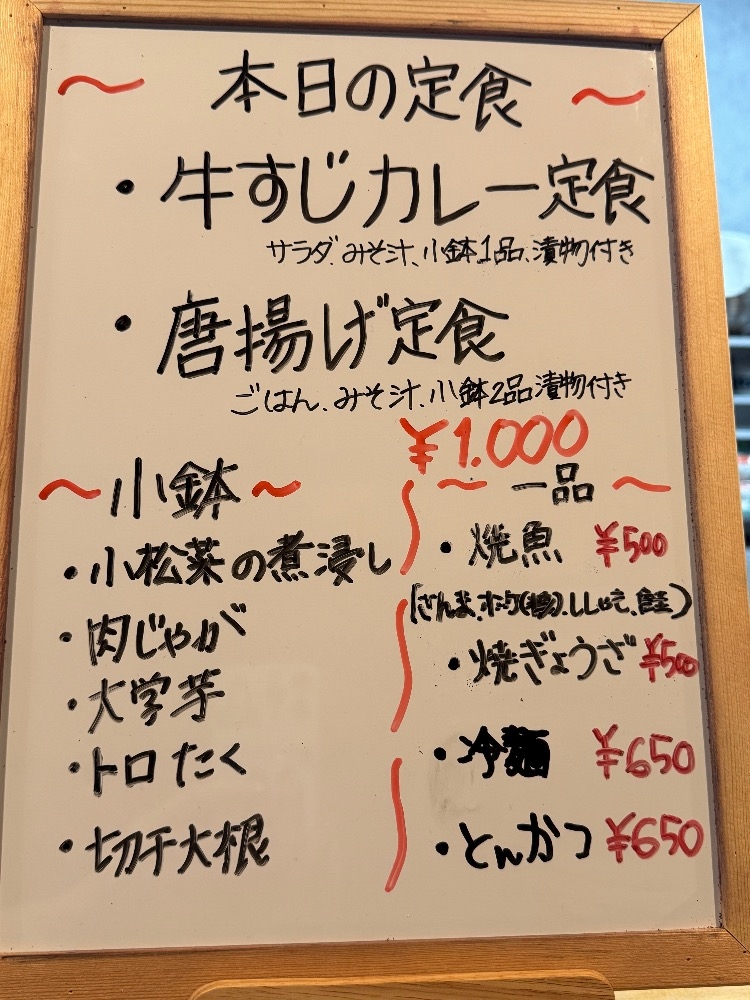 〜 本日の定食 〜
・牛すじカレー定食
サラダ、みそ汁、小鉢1品、漬物付き
・唐揚げ定食
ごはん、みそ汁、小鉢2品漬物付き
¥1.000
〜小鉢〜
・小松菜の煮浸し
・肉じゃが
・大学芋
・トロたく
・切干大根
〜一品〜
・焼魚 ¥500
(さんま、ホッケ()、ししゃも、鮭)
・焼ぎょうざ ¥500
・冷麺 ¥650
・とんかつ ¥650